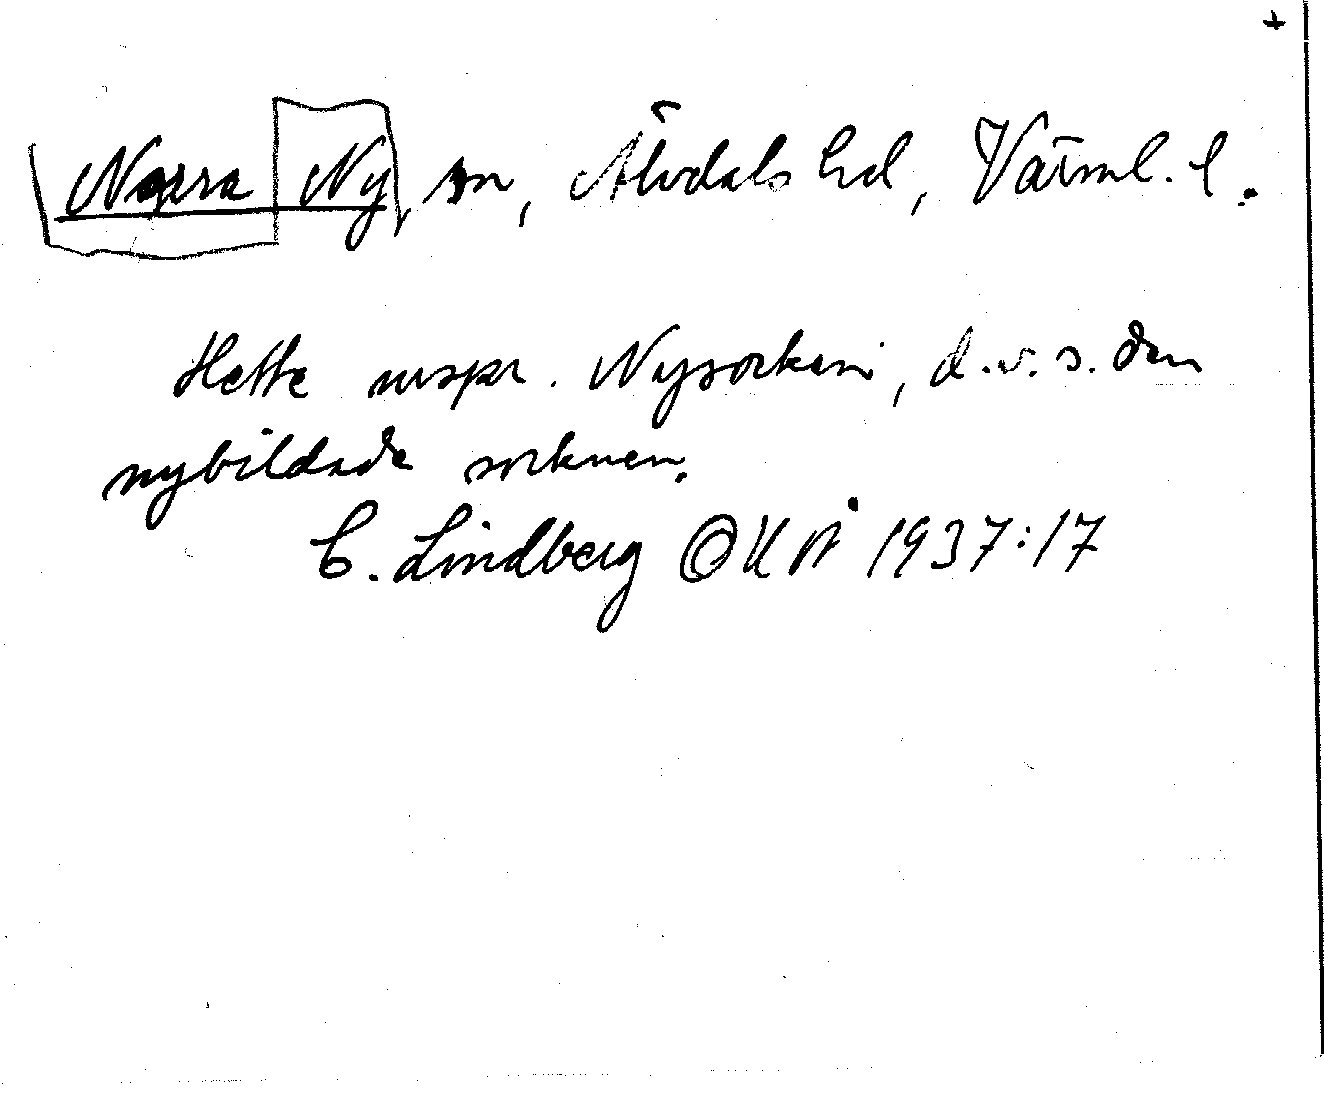 +
Norra Ny, sn, Älvdals hd, Värml. l.
Hette urspr. Nysocken, d.v.s. den
nybildade socknen.
C. Lindberg OUÅ 1937:17